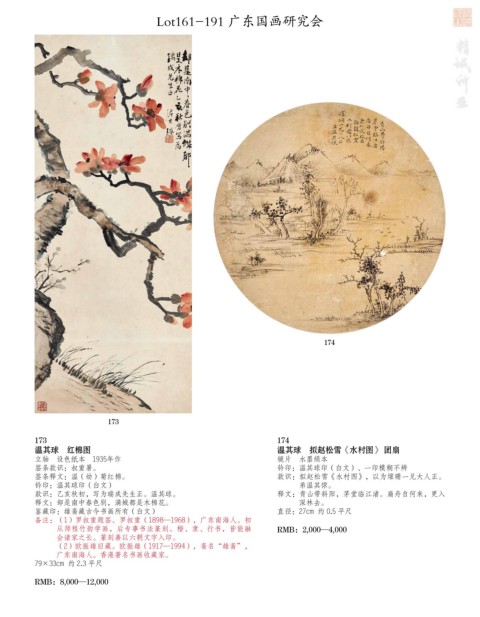 Lot161-191 广东国画研究会
精诚所至
却是南中春色别满城都
是木棉花乙亥秋初写为
瑞成先生正
173
174
173
温其球 红棉图
立轴 设色纸本 1935年作
签条款识：叔重署。
签条释文：温（幼）菊红棉。
钤印：温其球印（白文）
款识：乙亥秋初，写为瑞成先生正。温其球。
释文：却是南中春色别，满城都是木棉花。
鉴藏印：雄斋藏古今书画所有（白文）
备注：（1）罗叔重题签。罗叔重（1898—1968），广东南海人。初
从陈树人竹朋学画，后专事书法篆刻。
（2）欧阳雄旧藏。欧阳雄（1917—1994），斋名“雄斋”，
广东南海人。香港著名书画收藏家。
79×33cm 约 2.3 平尺
RMB: 8,000—12,000
174
温其球 拟赵松雪《水村图》团扇
镜片 水墨绢本
钤印：温其球印（白文）、一印模糊不辨
款识：拟赵松雪《水村图》，以为堪珊一兄大人正。
弟温其球。
释文：青山带斜阳，茅堂临江渚。扁舟自何来，更入
深林去。
直径：27cm 约 0.5 平尺
RMB: 2,000—4,000